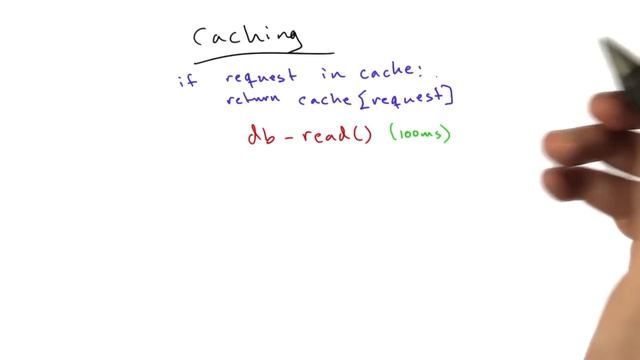 Caching
if request in cache:
return cache[request]
db-read() (100ms)